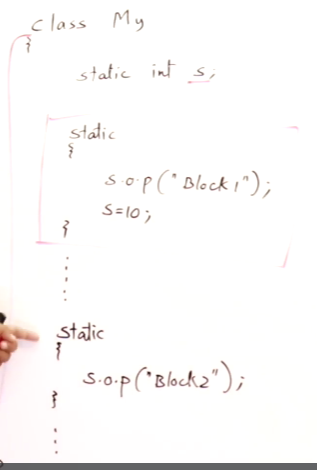 class My
{
static int s;
static
{
s.o.p("Block1");
s=10;
}
static
{
s.o.p("Block2");
}